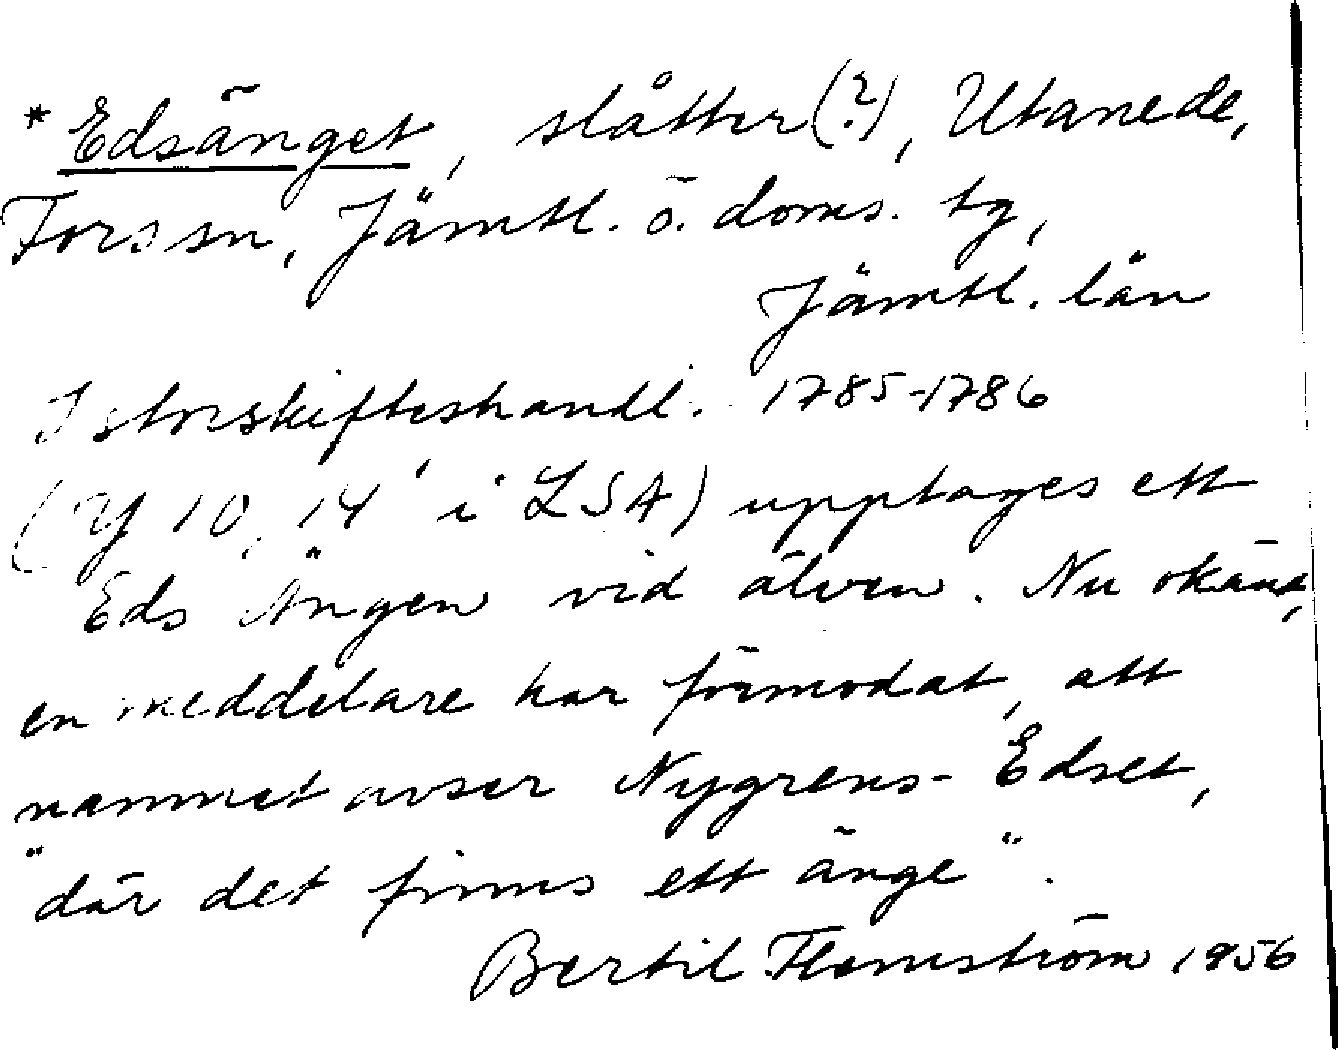 * Edsänget, slåtter(?), Utanede,
Fors sn, Jämtl. ö. doms. tg,
Jämtl. län
I storskifteshandl. 1785-1786
(Y 10, 14 i LSA) upptages ett
Eds Ängen vid älven. Nu okänt,
en meddelare har förmodat, att
namnet avser Nygrens-Edset,
"där det finns ett änge".
Bertil Flemström 1956